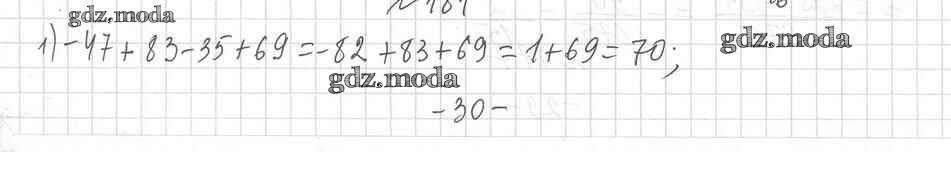 gdz.moda
1) -47 + 83 - 35 + 69 = -82 + 83 + 69 = 1 + 69 = 70;
gdz.moda
gdz.moda
- 30 -